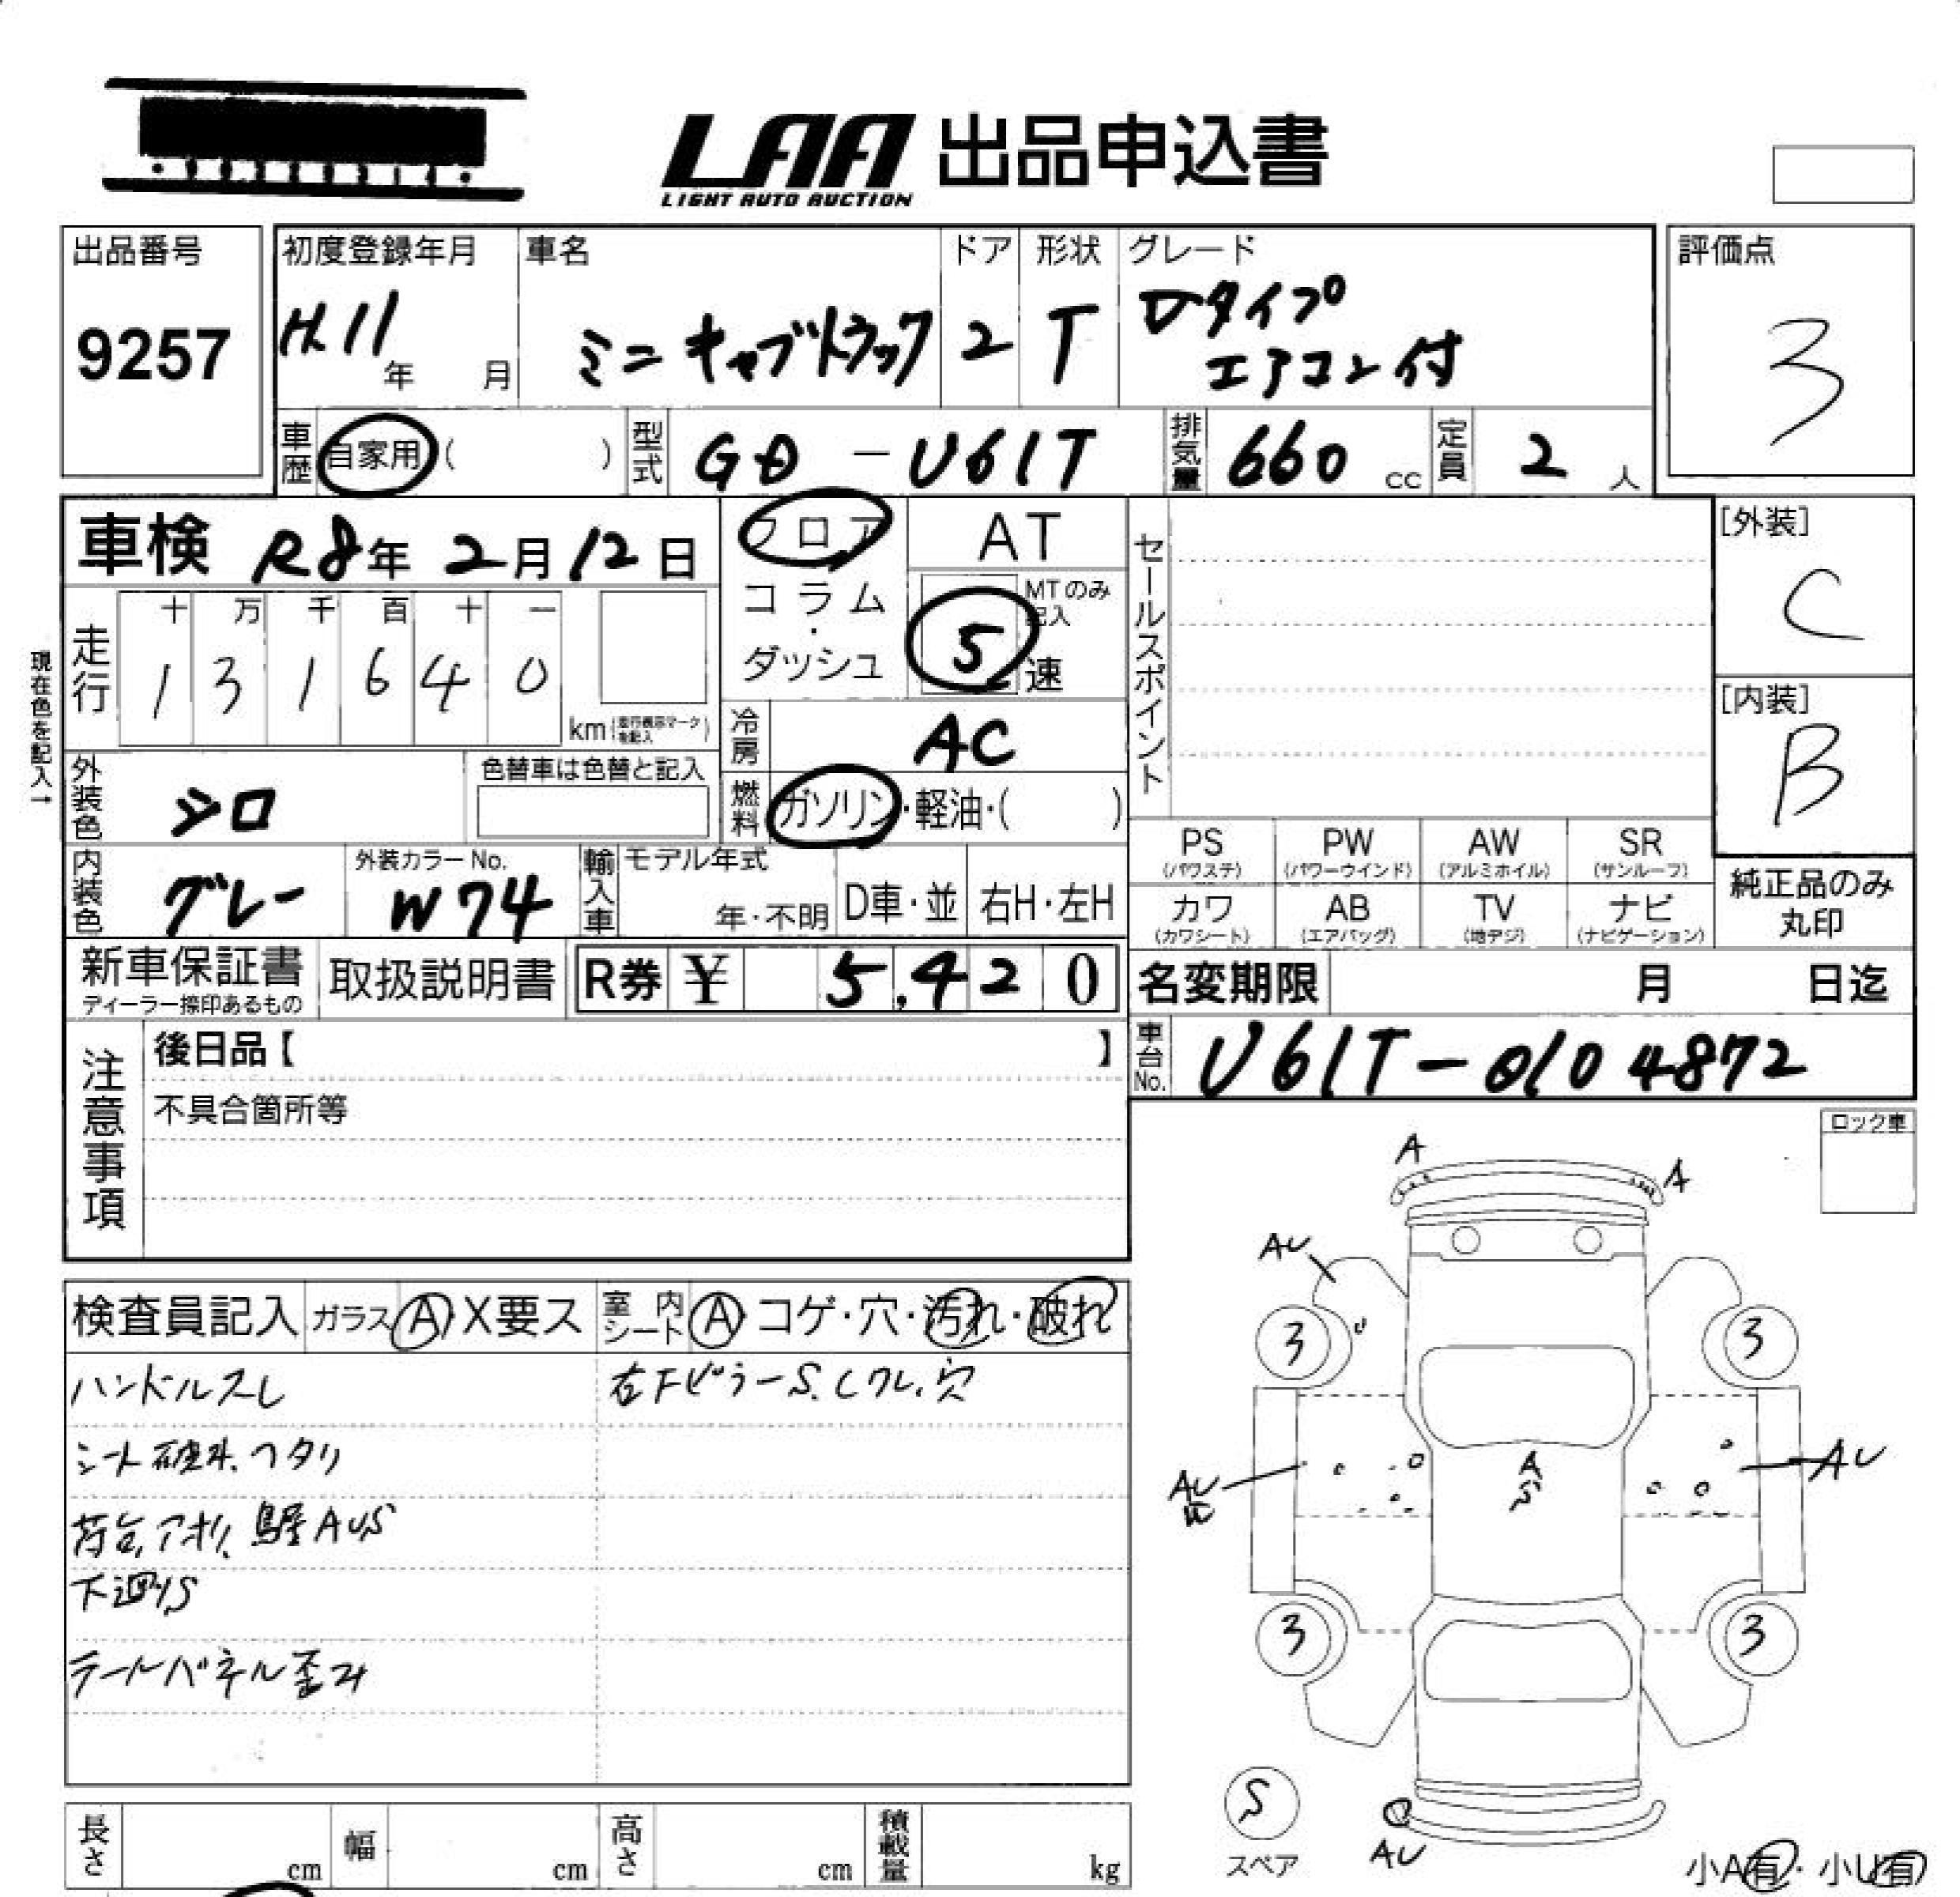 LAA 出品申込書
LIGHT AUTO AUCTION
出品番号
9257
初度登録年月
H.11年 月
車名
ミニキャブトラック
ドア
2
形状
T
グレード
Vタイプ
エアコン付
評価点
3
車歴 自家用 ( )
型式 GD-U61T
排気量 660 cc
定員 2 人
車検 R8年 2月 12日
現在色を記入→
走行
十 万 千 百 十 一
1 3 1 6 4 0
km (走行表示マークを記入)
フロア
コラム・ダッシュ
AT
MTのみ記入
5速
冷房 AC
燃料 ガソリン・軽油・( )
外装色 シロ
色替車は色替と記入
内装色 グレー
外装カラーNo.
W74
輸入車
モデル年式
年・不明
D車・並
右H・左H
セールスポイント
[外装]
C
[内装]
B
PS (パワステ)
PW (パワーウインド)
AW (アルミホイル)
SR (サンルーフ)
カワ (カワシート)
AB (エアバッグ)
TV (地デジ)
ナビ (ナビゲーション)
純正品のみ丸印
新車保証書
ディーラー捺印あるもの
取扱説明書
R券 ¥ 5,420
名変期限 月 日迄
車台No. U61T-0104872
注意事項
後日品【 】
不具合箇所等
ロック車
検査員記入
ガラス A X要ス
室内シート A コゲ・穴・汚れ・破れ
ハンドルスレ
シート破れ、ヘタリ
荷台、アオリ、鳥居AUS
下廻りS
テールパネル歪み
右FピラーS、Cワレ、穴
A
A
AU
U
3
3
AU
A
S
AU
3
3
S
スペア
AU
小A有・小U有
長さ cm
幅 cm
高さ cm
積載量 kg